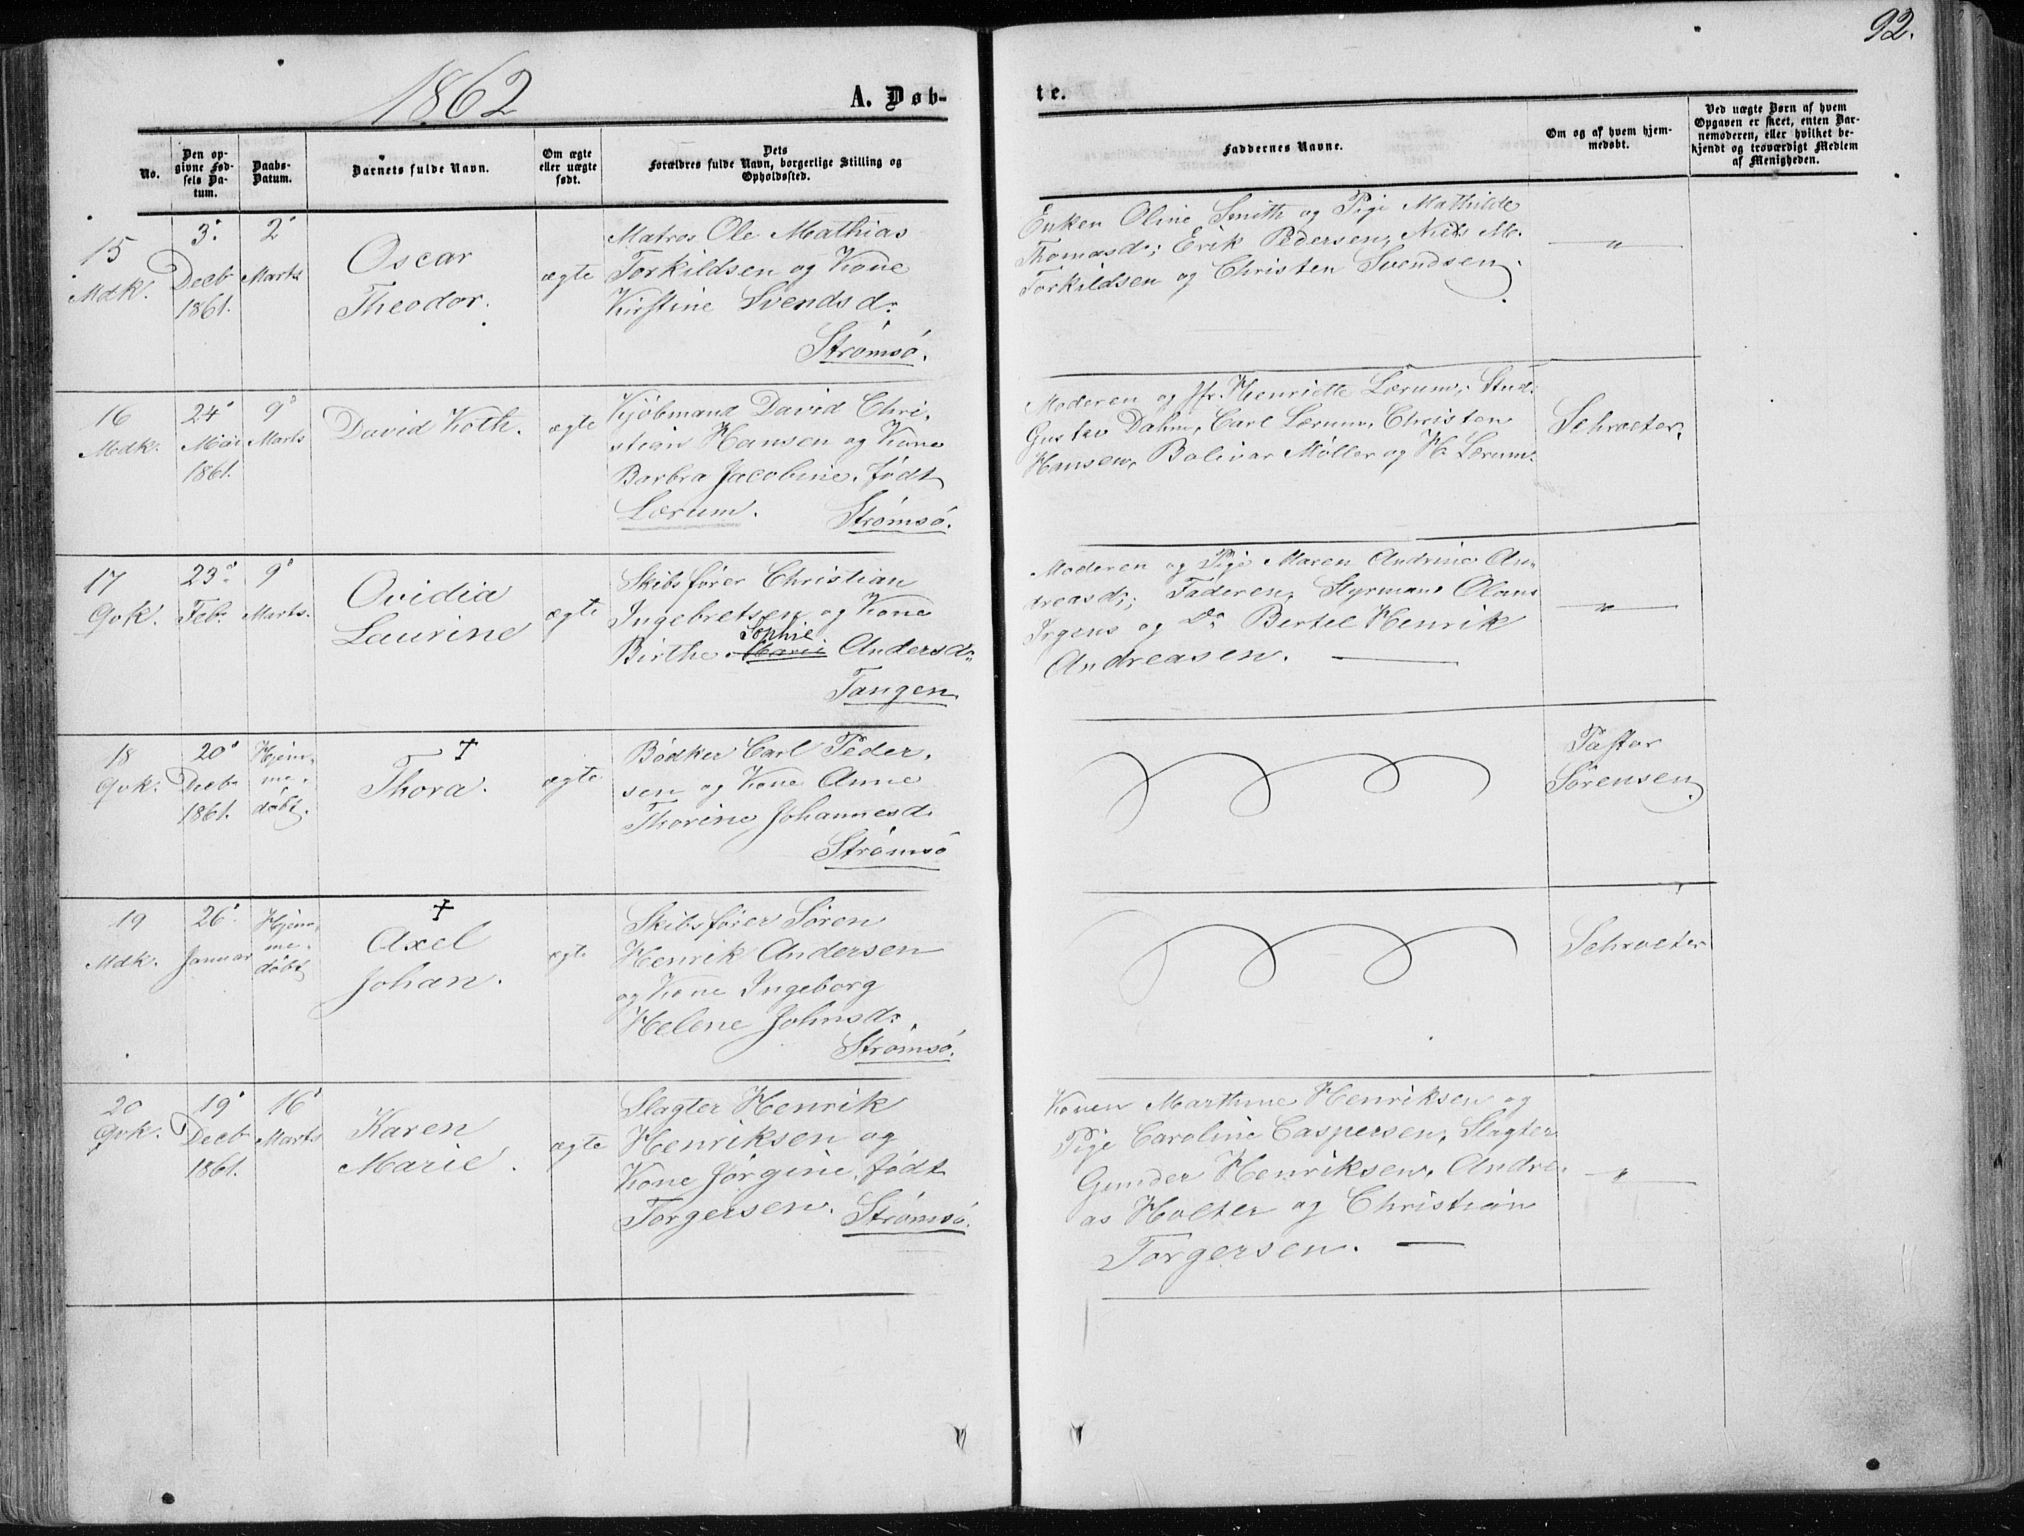 92.
1862
A. Døb-
te.
No.
Den op-
givne Fød-
sels Da-
tum.
Daabs-
Datum.
Barnets fulde Navn.
Om ægte
eller uægte
født.
Dets
Forældres fulde Navn, borgerlige Stilling og
Opholdssted.
Faddernes Navne.
Om og af hvem hjem-
medøbt.
Ved uægte Børn af hvem
Opgaven er skeet, enten Bar-
nemoderen, eller hvilket be-
kjendt og troværdigt Medlem
af Menigheden.
15
Mdk.
3.
Decb
1861.
2
Marts
Oscar
Theodor.
ægte
Matros Ole Mathias
Torkildsen og Kone
Kirstine Svendsd:
Strømsö.
Enken Oline Smith og Pige Mathilde
Thomasd; Erik Pedersen, Niels M.
Torkildsen og Christen Svendsen.
"
16
Mdk.
24
Mai
1861.
9
Marts
David Koth.
ægte
Kjöbmand David Chri-
stian Hansen og Kone
Barbra Jacobine, född
Lærum. Strømsö.
Moderen og Jfr. Henriette Lærum; Stud:
Gustav Dahm, Carl Lærum, Christen
Hansen, Bolivar Møller og H. Lærum.
Schroeter.
17
Qvk.
23
Feb:
9
Marts.
Ovidia
Laurine
ægte
Skibsfører Christian
Ingebretsen og Kone
Sophie
Birthe Marie Andersd:
Tangen
Moderen og Pige Maren Andrine An-
dreasd; Faderen, Styrmand Olaus
Irgens og Do Bertel Henrik
Andreasen.
"
18
Qvk.
20
Decb
1861.
Hjem-
me-
döbt.
+
Thora.
ægte
Bödker Carl Peder-
sen og Kone Anne
Thorine Johannesd.
Strømsö
Pastor
Sörensen.
19
Mdk.
26
Januar
Hjem-
me-
döbt
+
Axel
Johan.
ægte
Skibsfører Sören
Henrik Andersen
og Kone Ingeborg
Helene Johnsd:
Strømsö.
Schroeter
20
Qvk.
19
Decb
1861.
16
Marts
Karen
Marie.
ægte
Slagter Henrik
Henriksen og
Kone Jörgine, född
Torgersen. Strømsö.
Konen Marthine Henriksen og
Pige Caroline Caspersen, Slagter
Gunder Henriksen, Andre-
as Holter og Christian
Torgersen.
"